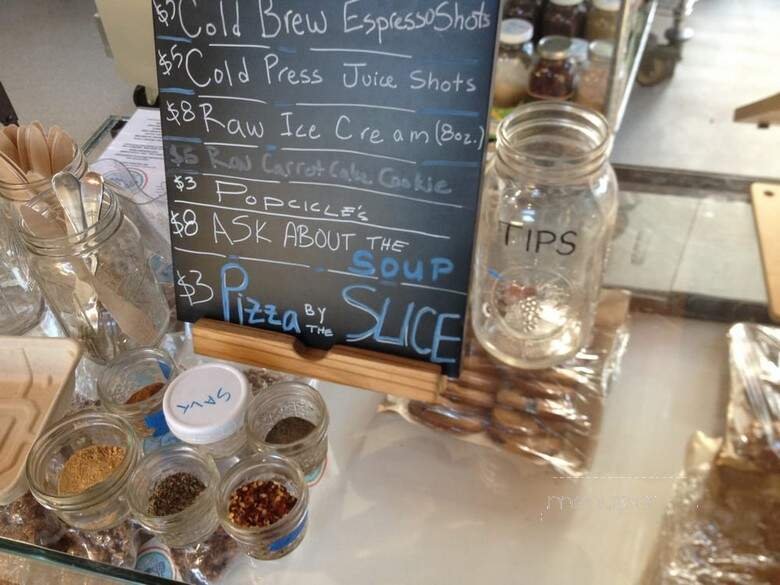 $5 Cold Brew Espresso Shots
$5 Cold Press Juice Shots
$8 Raw Ice Cream (8oz.)
$5 Raw Carrot Cake Cookie
$3 POPCICLE'S
$8 ASK ABOUT THE
SOUP
$3 Pizza BY THE SLICE
TIPS
SALT